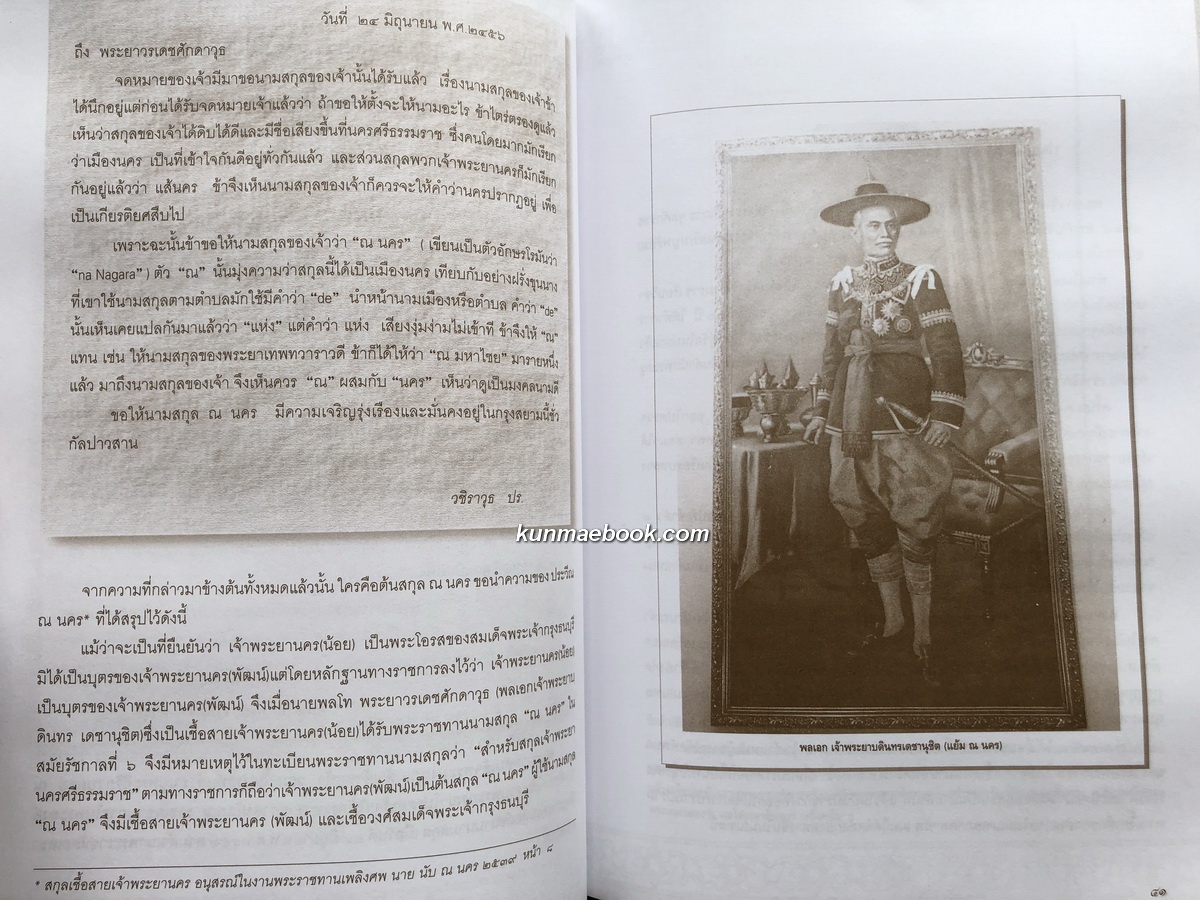 วันที่ ๒๔ มิถุนายน พ.ศ.๒๔๕๖
ถึง พระยาวรเดชศักดาวุธ
จดหมายของเจ้ามีมาขอนามสกุลของเจ้านั้นได้รับแล้ว เรื่องนามสกุลของเจ้าข้า
ได้นึกอยู่แต่ก่อนได้รับจดหมายเจ้าแล้วว่า ถ้าขอให้ตั้งจะให้นามอะไร ข้าไตร่ตรองดูแล้ว
เห็นว่าสกุลของเจ้าได้ดิบได้ดีและมีชื่อเสียงขึ้นที่นครศรีธรรมราช ซึ่งคนโดยมากมักเรียก
ว่าเมืองนคร เป็นที่เข้าใจกันดีอยู่ทั่วกันแล้ว และส่วนสกุลพวกเจ้าพระยานครก็มักเรียก
กันอยู่แล้วว่า แส้นคร ข้าจึงเห็นนามสกุลของเจ้าก็ควรจะให้คำว่านครปรากฏอยู่ เพื่อ
เป็นเกียรติยศสืบไป
เพราะฉะนั้นข้าขอให้นามสกุลของเจ้าว่า “ณ นคร” ( เขียนเป็นตัวอักษรโรมันว่า
“na Nagara” ) ตัว “ณ” นั้นมุ่งความว่าสกุลนี้ได้เป็นเมืองนคร เทียบกับอย่างฝรั่งขุนนาง
ที่เขาใช้นามสกุลตามตำบลมักใช้มีคำว่า “de” นำหน้านามเมืองหรือตำบล คำว่า “de”
นั้นเห็นเคยแปลกันมาแล้วว่า “แห่ง” แต่คำว่า แห่ง เสียงงุ่มง่ามไม่เข้าที ข้าจึงให้ “ณ”
แทน เช่น ให้นามสกุลของพระยาเทพทวาราวดี ข้าก็ได้ให้ว่า “ณ มหาไชย” มารายหนึ่ง
แล้ว มาถึงนามสกุลของเจ้า จึงเห็นควร “ณ” ผสมกับ “นคร” เห็นว่าดูเป็นมงคลนามดี
ขอให้นามสกุล ณ นคร มีความเจริญรุ่งเรืองและมั่นคงอยู่ในกรุงสยามนี้ชั่ว
กัลปาวสาน
วชิราวุธ ปร.
จากความที่กล่าวมาข้างต้นทั้งหมดแล้วนั้น ใครคือต้นสกุล ณ นคร ขอนำความของ ประวีณ
ณ นคร* ที่ได้สรุปไว้ดังนี้
แม้ว่าจะเป็นที่ยืนยันว่า เจ้าพระยานคร(น้อย) เป็นพระโอรสของสมเด็จพระเจ้ากรุงธนบุรี
มิได้เป็นบุตรของเจ้าพระยานคร(พัฒน์)แต่โดยหลักฐานทางราชการลงไว้ว่า เจ้าพระยานคร(น้อย)
เป็นบุตรของเจ้าพระยานคร(พัฒน์) จึงเมื่อนายพลโท พระยาวรเดชศักดาวุธ (พลเอกเจ้าพระยาบ
ดินทร เดชานุชิต)ซึ่งเป็นเชื้อสายเจ้าพระยานคร(น้อย)ได้รับพระราชทานนามสกุล “ณ นคร” ใน
สมัยรัชกาลที่ ๖ จึงมีหมายเหตุไว้ในทะเบียนพระราชทานนามสกุลว่า “สำหรับสกุลเจ้าพระยา
นครศรีธรรมราช” ตามทางราชการก็ถือว่าเจ้าพระยานคร(พัฒน์)เป็นต้นสกุล “ณ นคร” ผู้ใช้นามสกุล
“ณ นคร” จึงมีเชื้อสายเจ้าพระยานคร (พัฒน์) และเชื้อวงศ์สมเด็จพระเจ้ากรุงธนบุรี
* สกุลเชื้อสายเจ้าพระยานคร อนุสรณ์ในงานพระราชทานเพลิงศพ นาย นับ ณ นคร ๒๕๓๙ หน้า ๘
พลเอก เจ้าพระยาบดินทรเดชานุชิต (แย้ม ณ นคร)
๔๑
kunmaebook.com